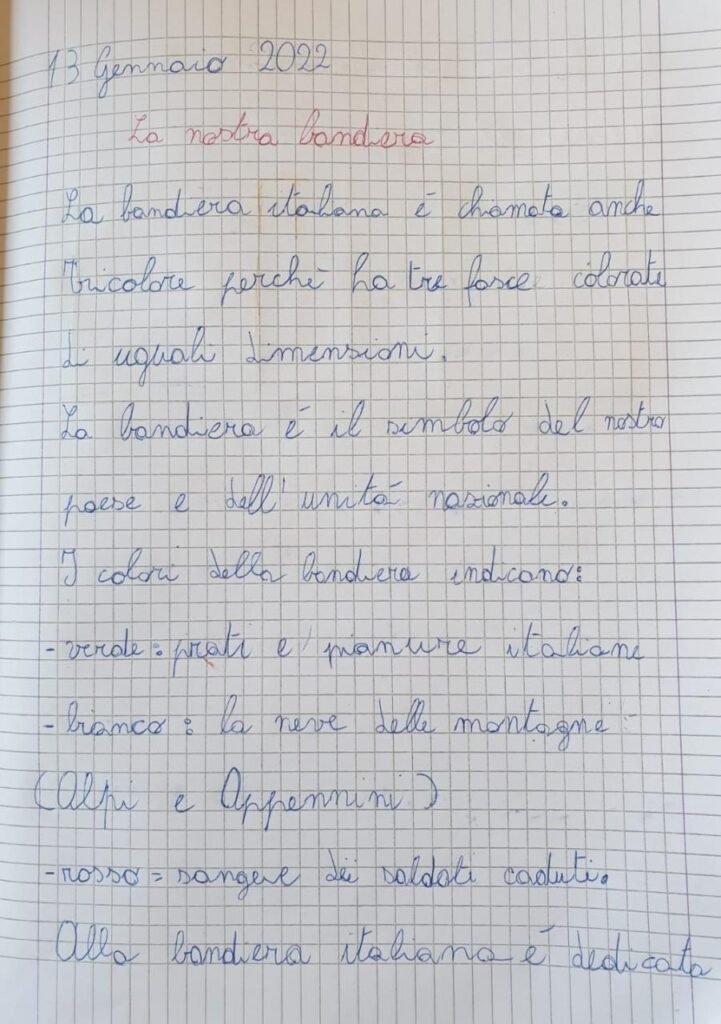 13 Gennaio 2022
La nostra bandiera
La bandiera italiana è chiamata anche
Tricolore perché ha tre fasce colorate
di uguali dimensioni.
La bandiera è il simbolo del nostro
paese e dell'unità nazionale.
I colori della bandiera indicano:
-verde: prati e pianure italiane
-bianco: la neve delle montagne
(Alpi e Appennini)
-rosso= sangue dei soldati caduti.
Alla bandiera italiana è dedicata